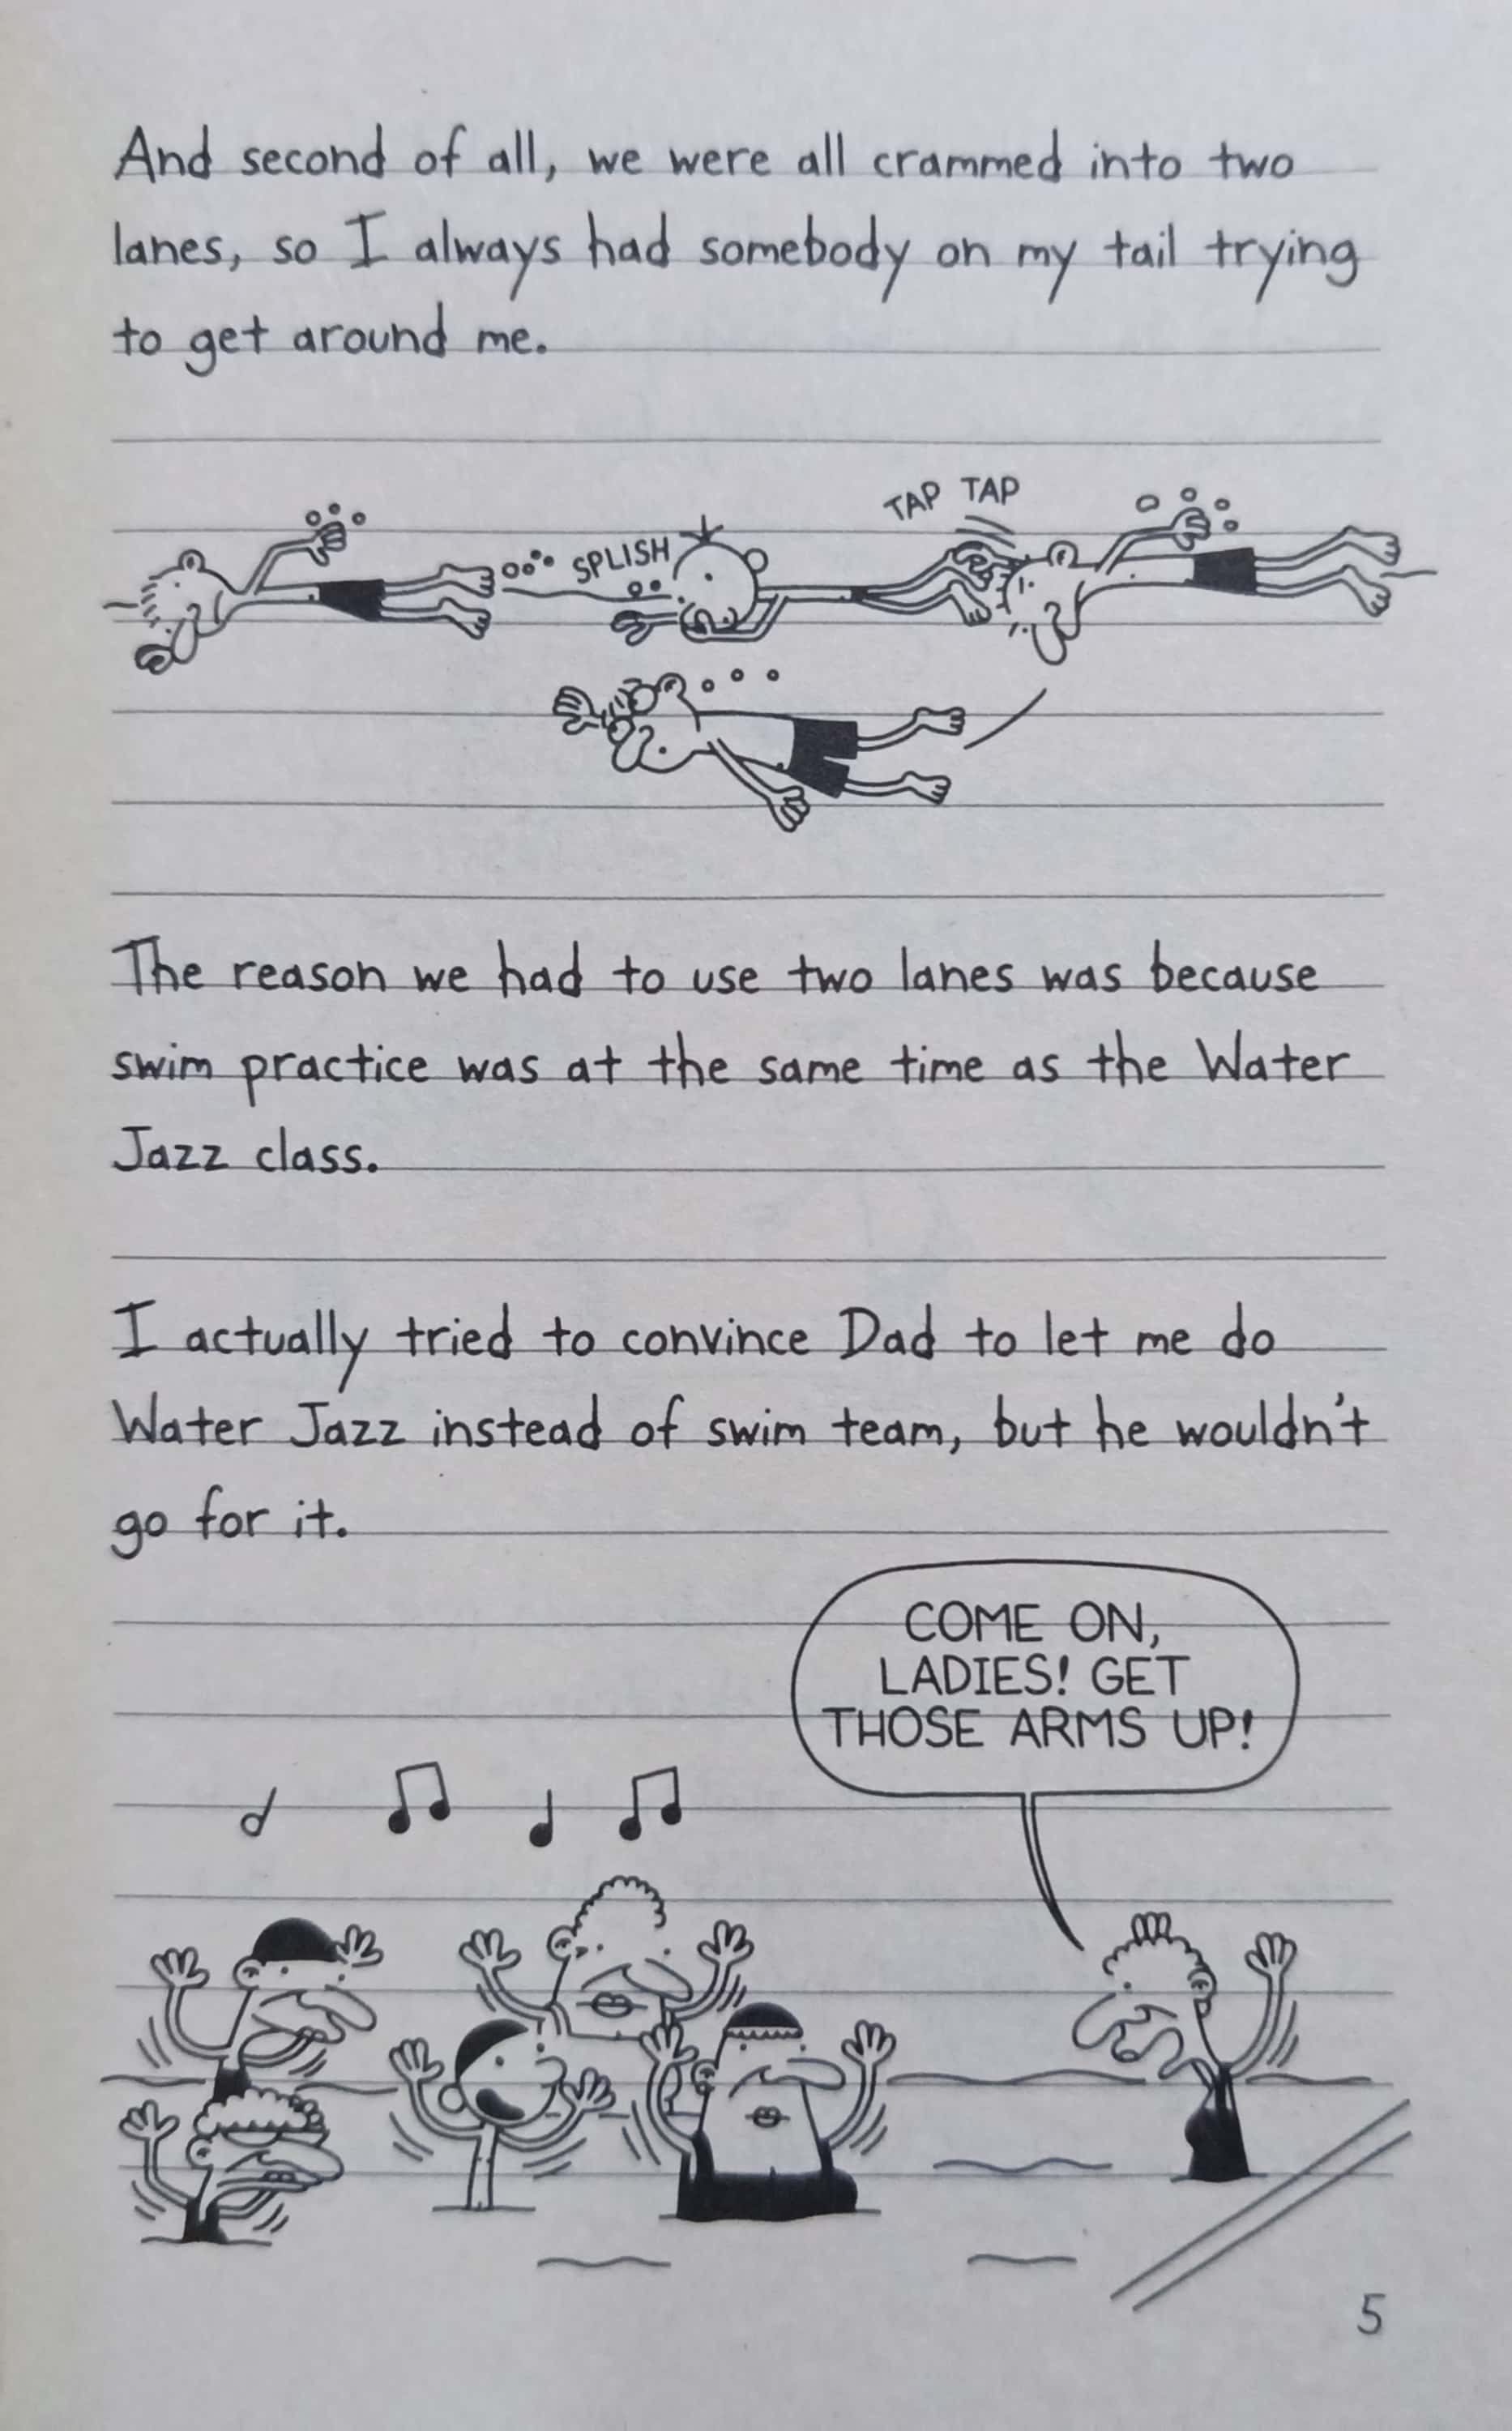 And second of all, we were all crammed into two
lanes, so I always had somebody on my tail trying
to get around me.
TAP TAP
SPLISH
The reason we had to use two lanes was because
swim practice was at the same time as the Water
Jazz class.
I actually tried to convince Dad to let me do
Water Jazz instead of swim team, but he wouldn't
go for it.
COME ON,
LADIES! GET
THOSE ARMS UP!
5